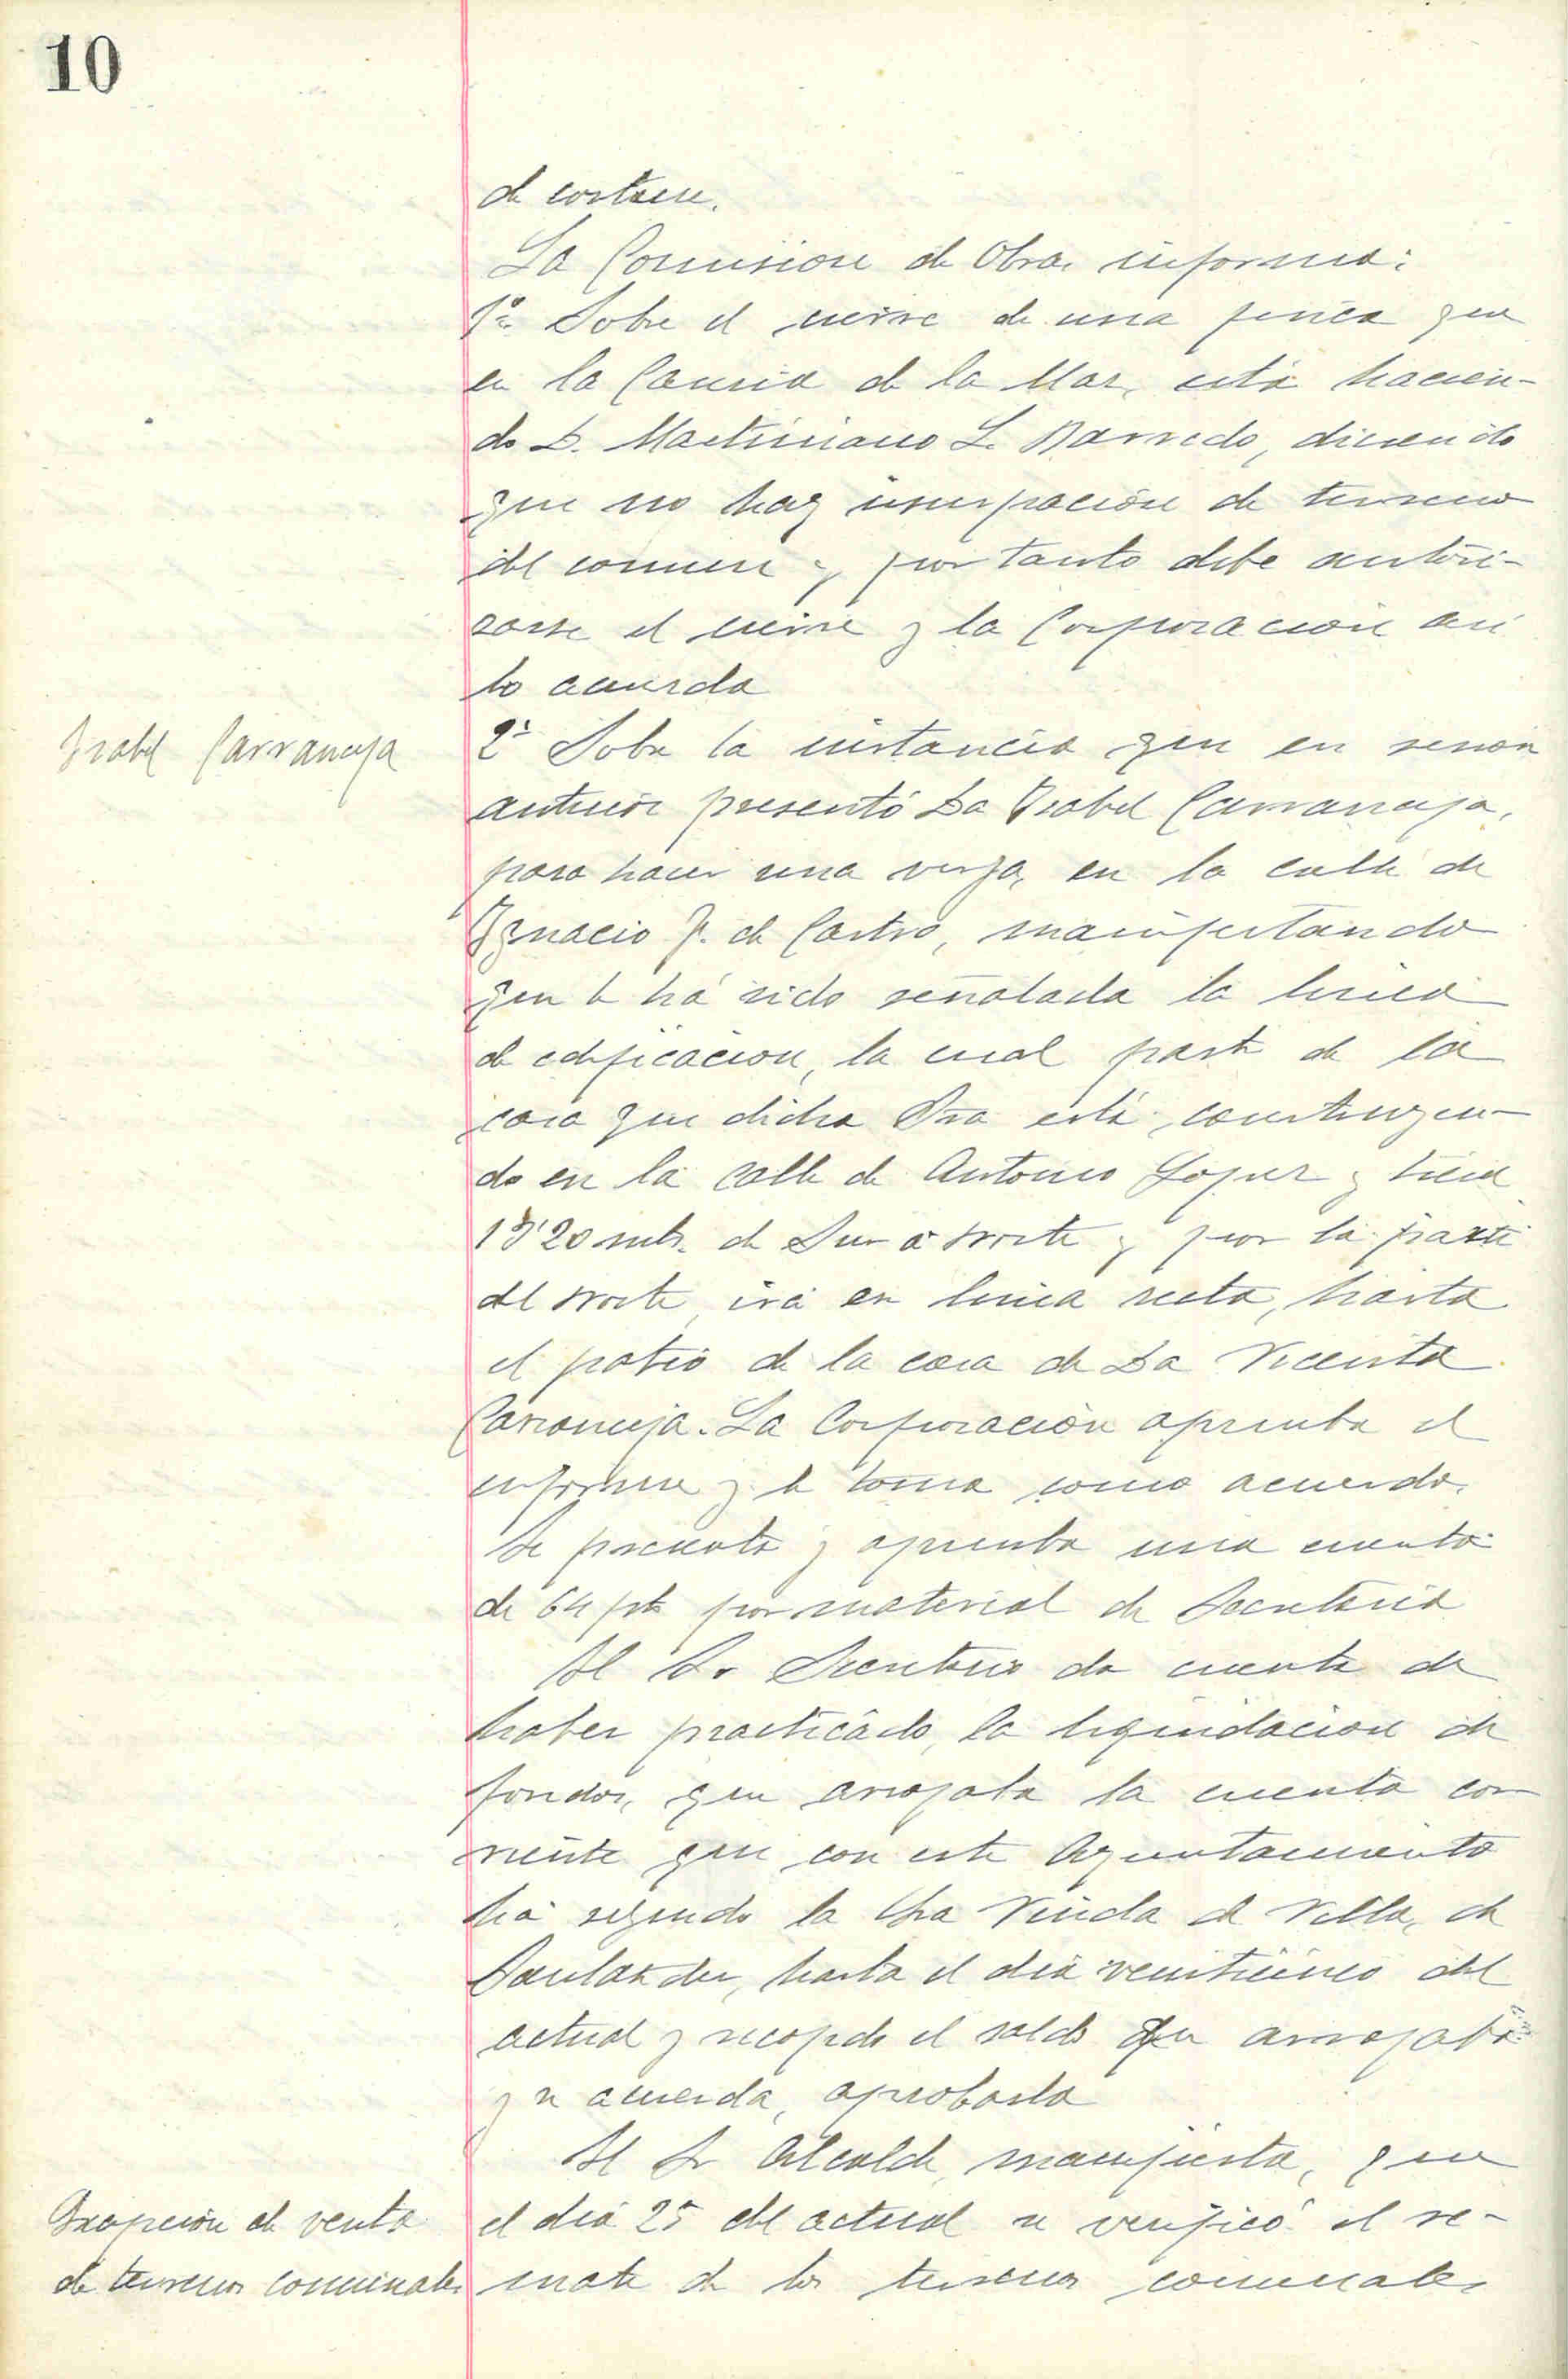 10
de costase.
La Comision de Obras informa:
1º Sobre el cierre de una finca que
en la Canria de la Mar, está hacien-
do D. Martiniano L. Barredo, diciendo
que no hay usurpación de terreno
del comun y por tanto debe autori-
zarse el cierre y la Corporación así
lo acuerda
Isabel Carranceja
2º Sobre la instancia que en sesion
anterior presentó Da Isabel Carranceja,
para hacer una verja, en la calle de
Ignacio F. de Castro, manifestando
que le há sido señalada la linea
de edificacion, la cual parte de la
casa que dicha Sra está construyen-
do en la calle de Antonio Lopez y tiene
13'20 mts. de Sur á Norte y por la parte
del Norte irá en linea recta, hasta
el patio de la casa de Da Vicenta
Carranceja. La Corporación aprueba el
informe y lo toma como acuerdo.
Se presenta y aprueba una cuenta
de 64 pts por material de Secretaría
El Sr Secretario da cuenta de
haber practicado, la liquidacion de
fondos, que arrojaba la cuenta cor
riente que con este Ayuntamiento
há seguido la Sra Viuda de Villa, de
Santander, hasta el día veinticinco del
actual y recogido el saldo que arrojaba
y se acuerda, aprobarla
El Sr Alcalde, manifiesta, que
Excepción de venta
de terrenos comunales
el día 25 del actual se verificó el re-
mate de los terrenos comunales